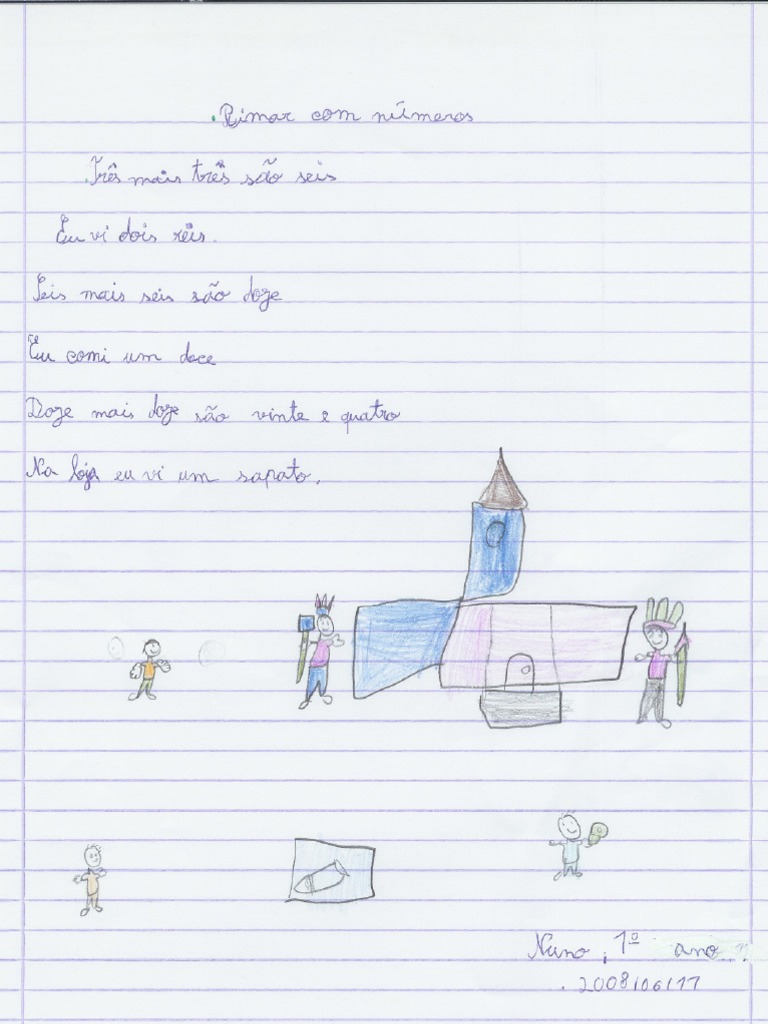 Rimar com números
Três mais três são seis
Eu vi dois réis.
Seis mais seis são doze
Eu comi um doce
Doze mais doze são vinte e quatro
Na loja eu vi um sapato.
Nuno, 1º ano
2008/06/17